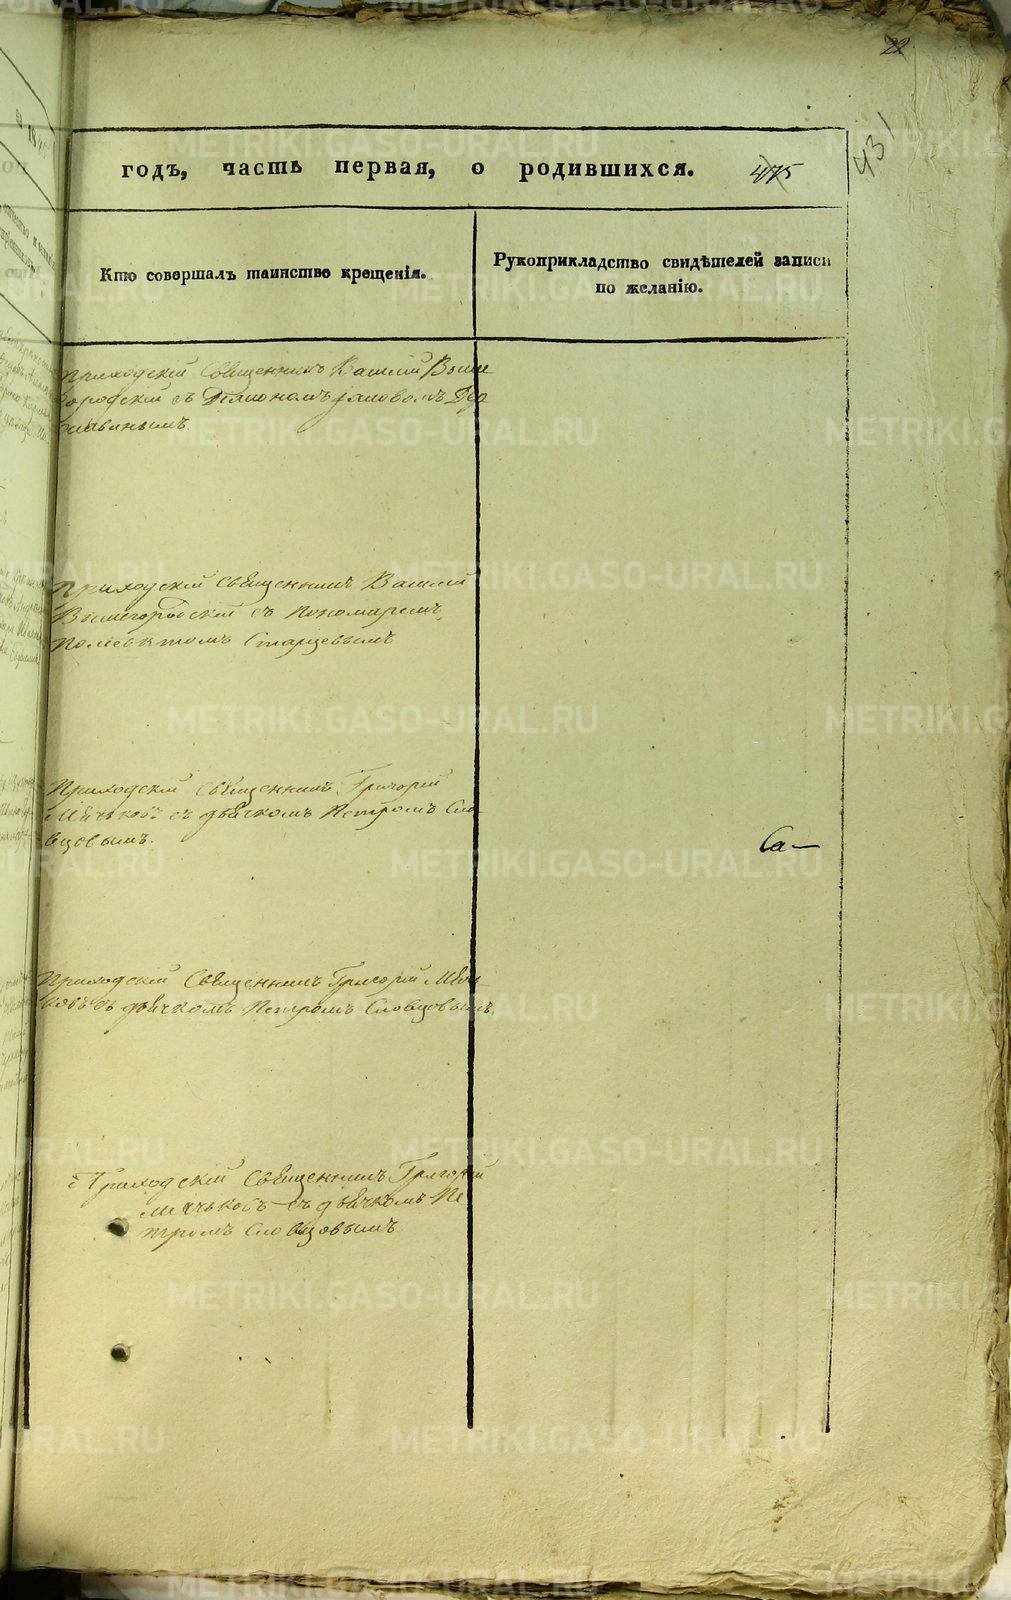 22
431
годъ, часть первая, о родившихся. 475
Кто совершалъ таинство крещенія.
Рукоприкладство свидѣтелей записи
по желанію.
Приходскій Священникъ Василій Выше
городскій съ Діакономъ Іаковомъ Дер
жавинымъ
Приходскій Священникъ Василій
Вышегородскій съ пономаремъ
Полиевктомъ Старцевымъ
Приходскій Священникъ Григорій
съ дьячкомъ Петромъ Сло
вцовымъ.
Са—
Приходскій Священникъ Григорій
ковъ съ дьячкомъ Петромъ Словцовымъ
Приходскій Священникъ Григорій
съ дьячкомъ Пе
тромъ Словцовымъ
METRIKI.GASO-URAL.RU